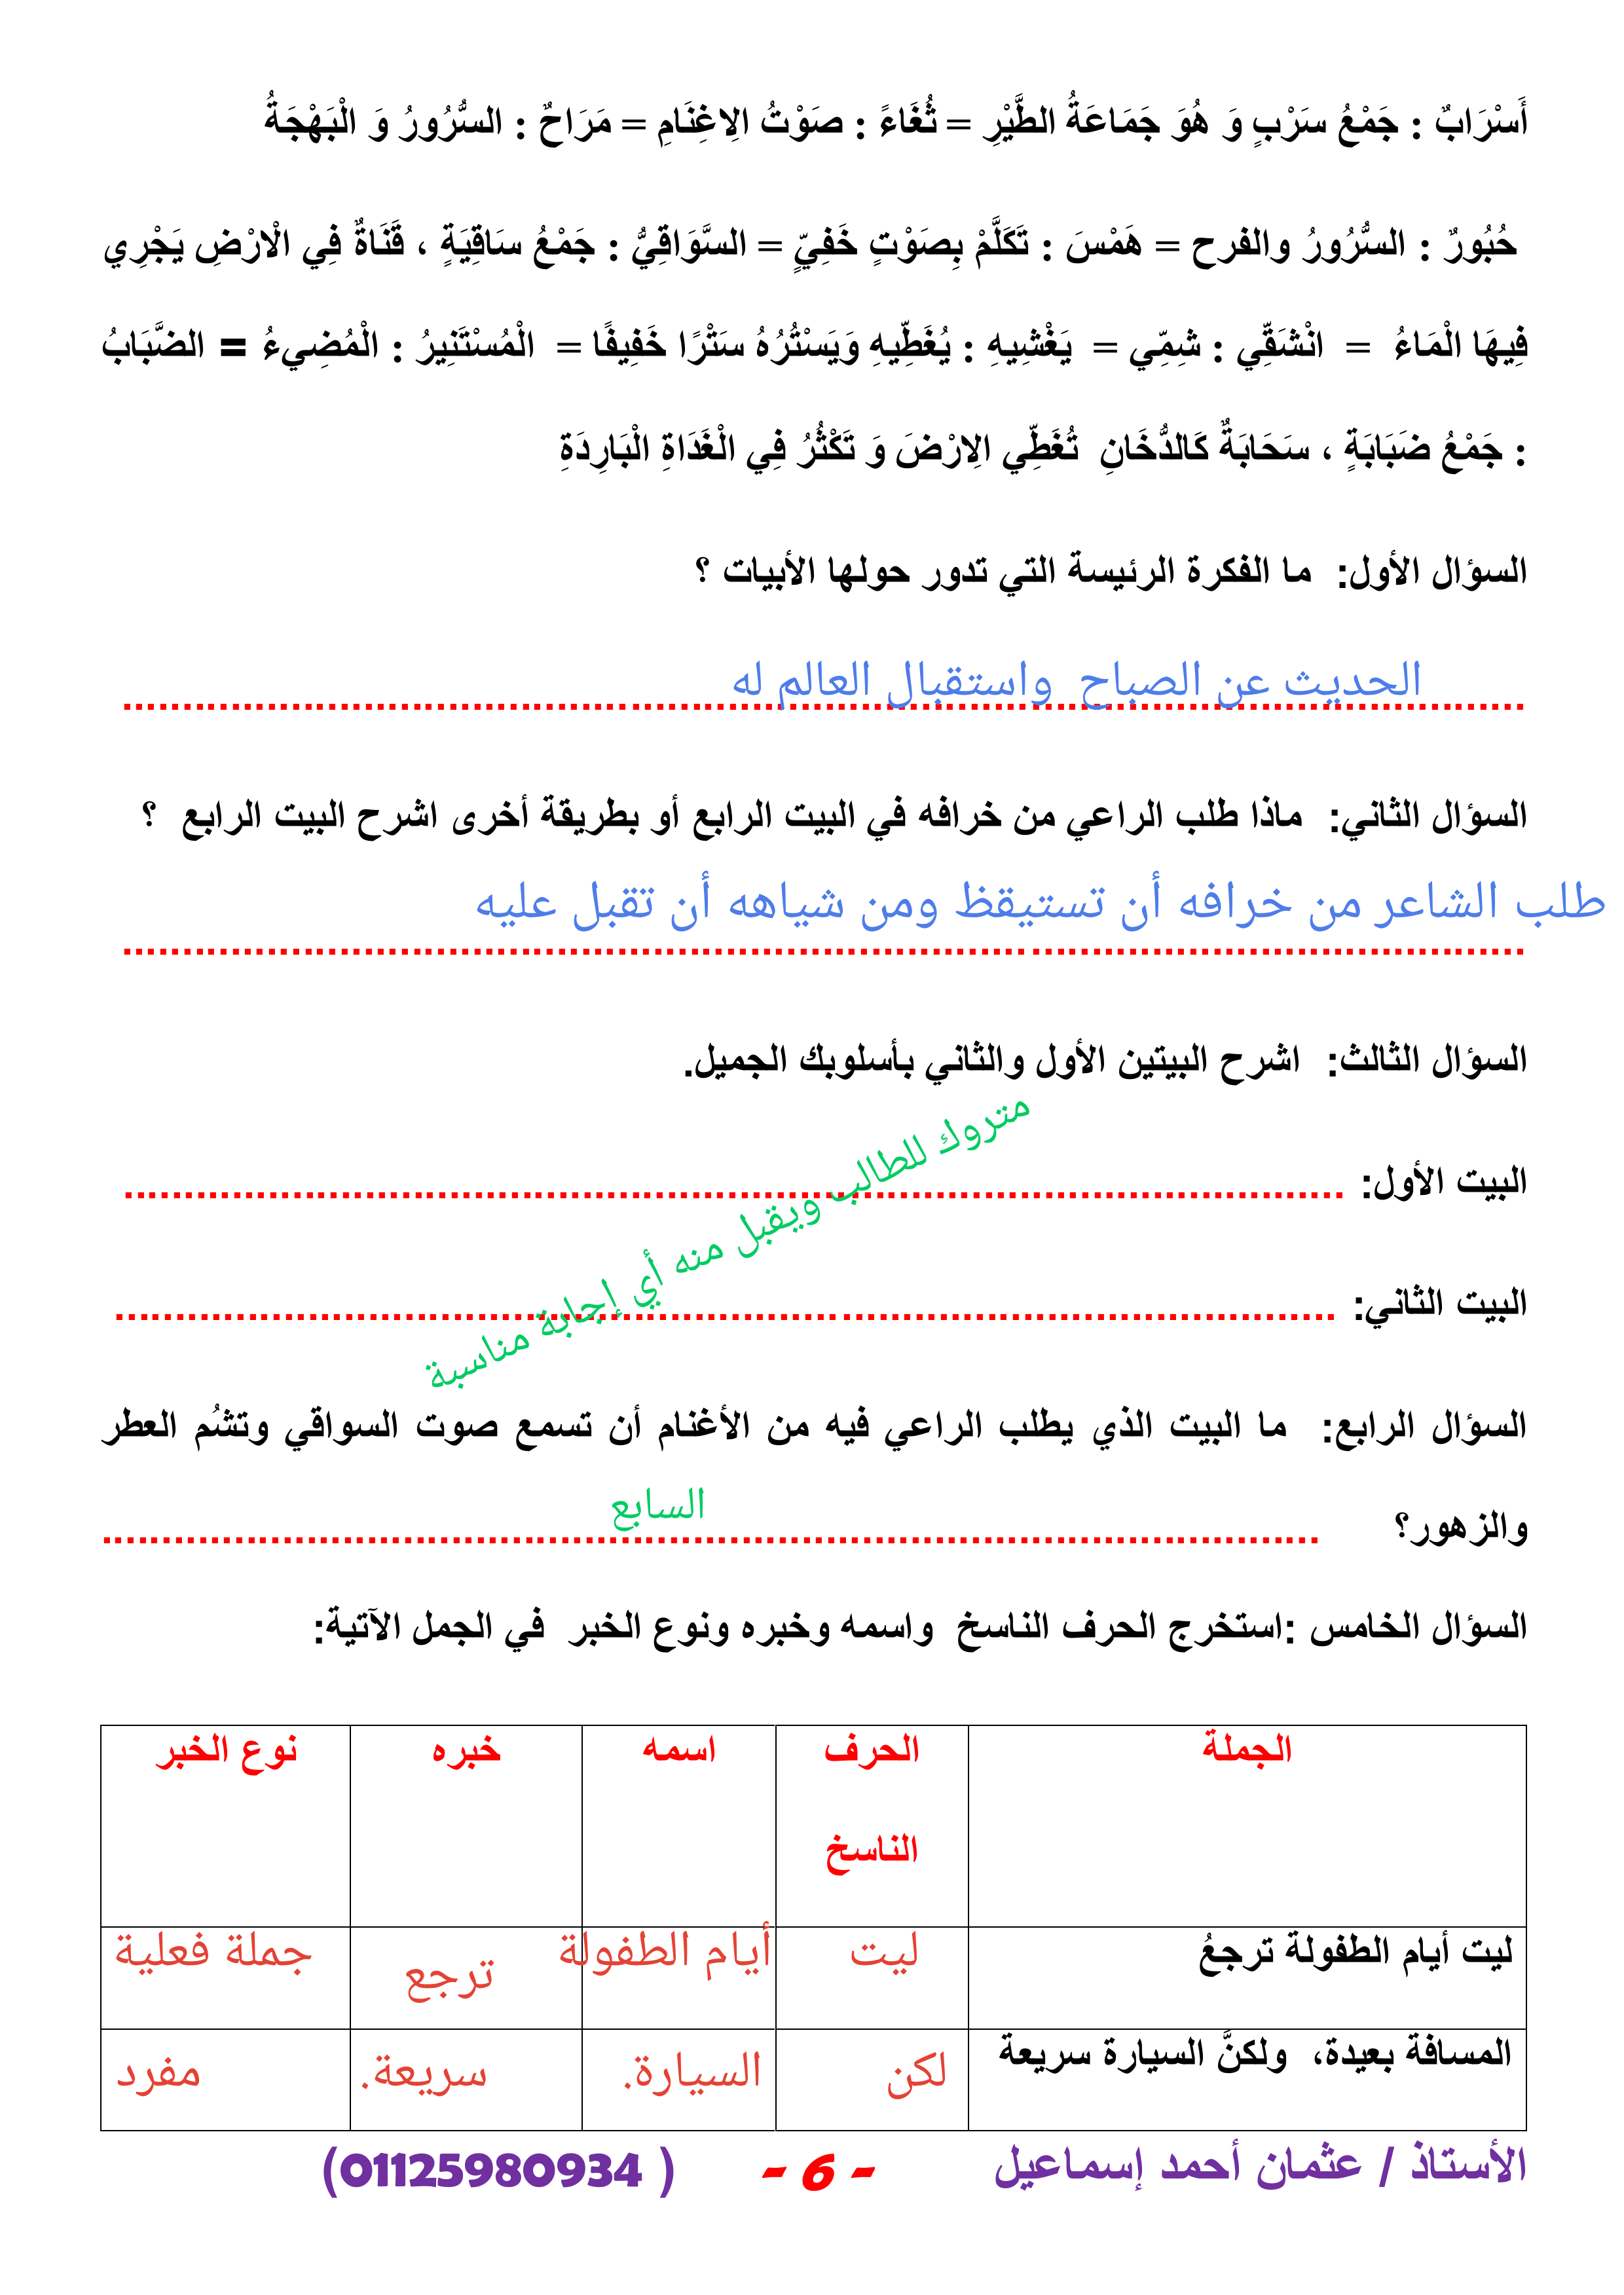 أَسْرَابٌ : جَمْعُ سَرْبٍ وَ هُوَ جَمَاعَةُ الطَّيْرِ = ثُغَاءً : صَوْتُ الِاغِنَامِ = مَرَاحٌ : السُّرُورُ وَ الْبَهْجَةُ
حُبُورٌ : السُّرُورُ والفرح = هَمْسَ : تَكَلَّمْ بِصَوْتٍ خَفِيٍّ = السَّوَاقِيُّ : جَمْعُ سَاقِيَةٍ ، قَنَاةٌ فِي الْارْضِ يَجْرِي
فِيهَا الْمَاءُ = انْشَقِّي : شِمِّي = يَغْشِيهِ : يُغَطِّيهِ وَيَسْتُرُهُ سَتْرًا خَفِيفًا = الْمُسْتَنِيرُ : الْمُضِيءُ = الضَّبَابُ
: جَمْعُ ضَبَابَةٍ ، سَحَابَةٌ كَالدُّخَانِ تُغَطِّي الِارْضَ وَ تَكْثُرُ فِي الْغَدَاةِ الْبَارِدَةِ
السؤال الأول: ما الفكرة الرئيسة التي تدور حولها الأبيات ؟
الحديث عن الصباح واستقبال العالم له
السؤال الثاني: ماذا طلب الراعي من خرافه في البيت الرابع أو بطريقة أخرى اشرح البيت الرابع ؟
طلب الشاعر من خرافه أن تستيقظ ومن شياهه أن تقبل عليه
السؤال الثالث: اشرح البيتين الأول والثاني بأسلوبك الجميل.
البيت الأول:
متروك للطالب ويقبل منه أي إجابة مناسبة
البيت الثاني:
السؤال الرابع: ما البيت الذي يطلب الراعي فيه من الأغنام أن تسمع صوت السواقي وتشُم العطر
والزهور؟ السابع
السؤال الخامس :استخرج الحرف الناسخ واسمه وخبره ونوع الخبر في الجمل الآتية:
الجملة الحرف الناسخ اسمه خبره نوع الخبر
ليت أيام الطفولة ترجعُ ليت أيام الطفولة ترجع جملة فعلية
المسافة بعيدة، ولكنَّ السيارة سريعة لكن السيارة. سريعة. مفرد
الأستاذ / عثمان أحمد إسماعيل - 6 - ( 01125980934)